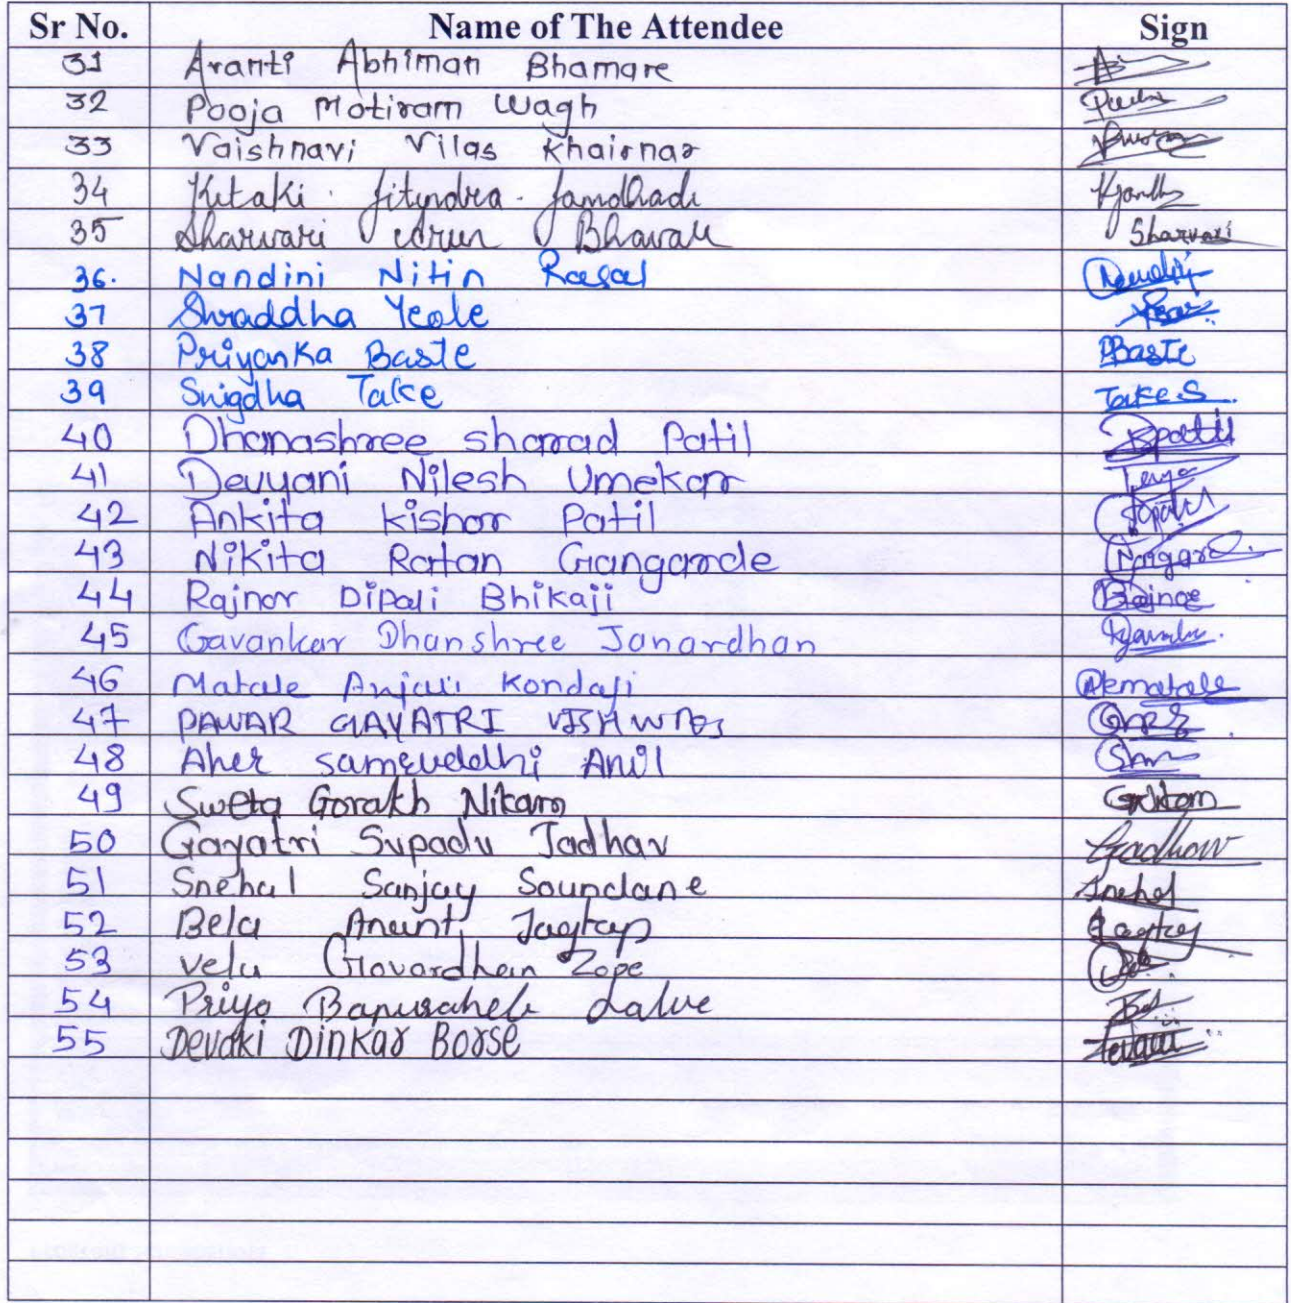 Sr No. Name of The Attendee Sign
31 Aranti Abhiman Bhamare
32 Pooja Motiram Wagh
33 Vaishnavi Vilas Khairnar
34 Kitaki Jitendra Jamdhade
35 Sharwari Arun Bhawale Sharvari
36. Nandini Nitin Rasal
37 Shraddha Yeole
38 Priyanka Baste PBaste
39 Snigdha Take Take.S.
40 Dhanashree sharad Patil
41 Devyani Nilesh Umekar
42 Ankita kishor Patil
43 Nikita Ratan Gangarde
44 Rajnor Dipali Bhikaji
45 Gavankar Dhanshree Janardhan
46 Matale Anjali Kondaji
47 PAWAR GAYATRI
48 Aher samruddhi Anil
49 Sweta Gorakh Nikam GNikam
50 Gayatri Supadu Jadhav
51 Snehal Sanjay Soundane Snehal
52 Bela Anant Jagtap
53 vela Govardhan Zope
54 Priya Bapusaheb
55 Devaki Dinkar Borse